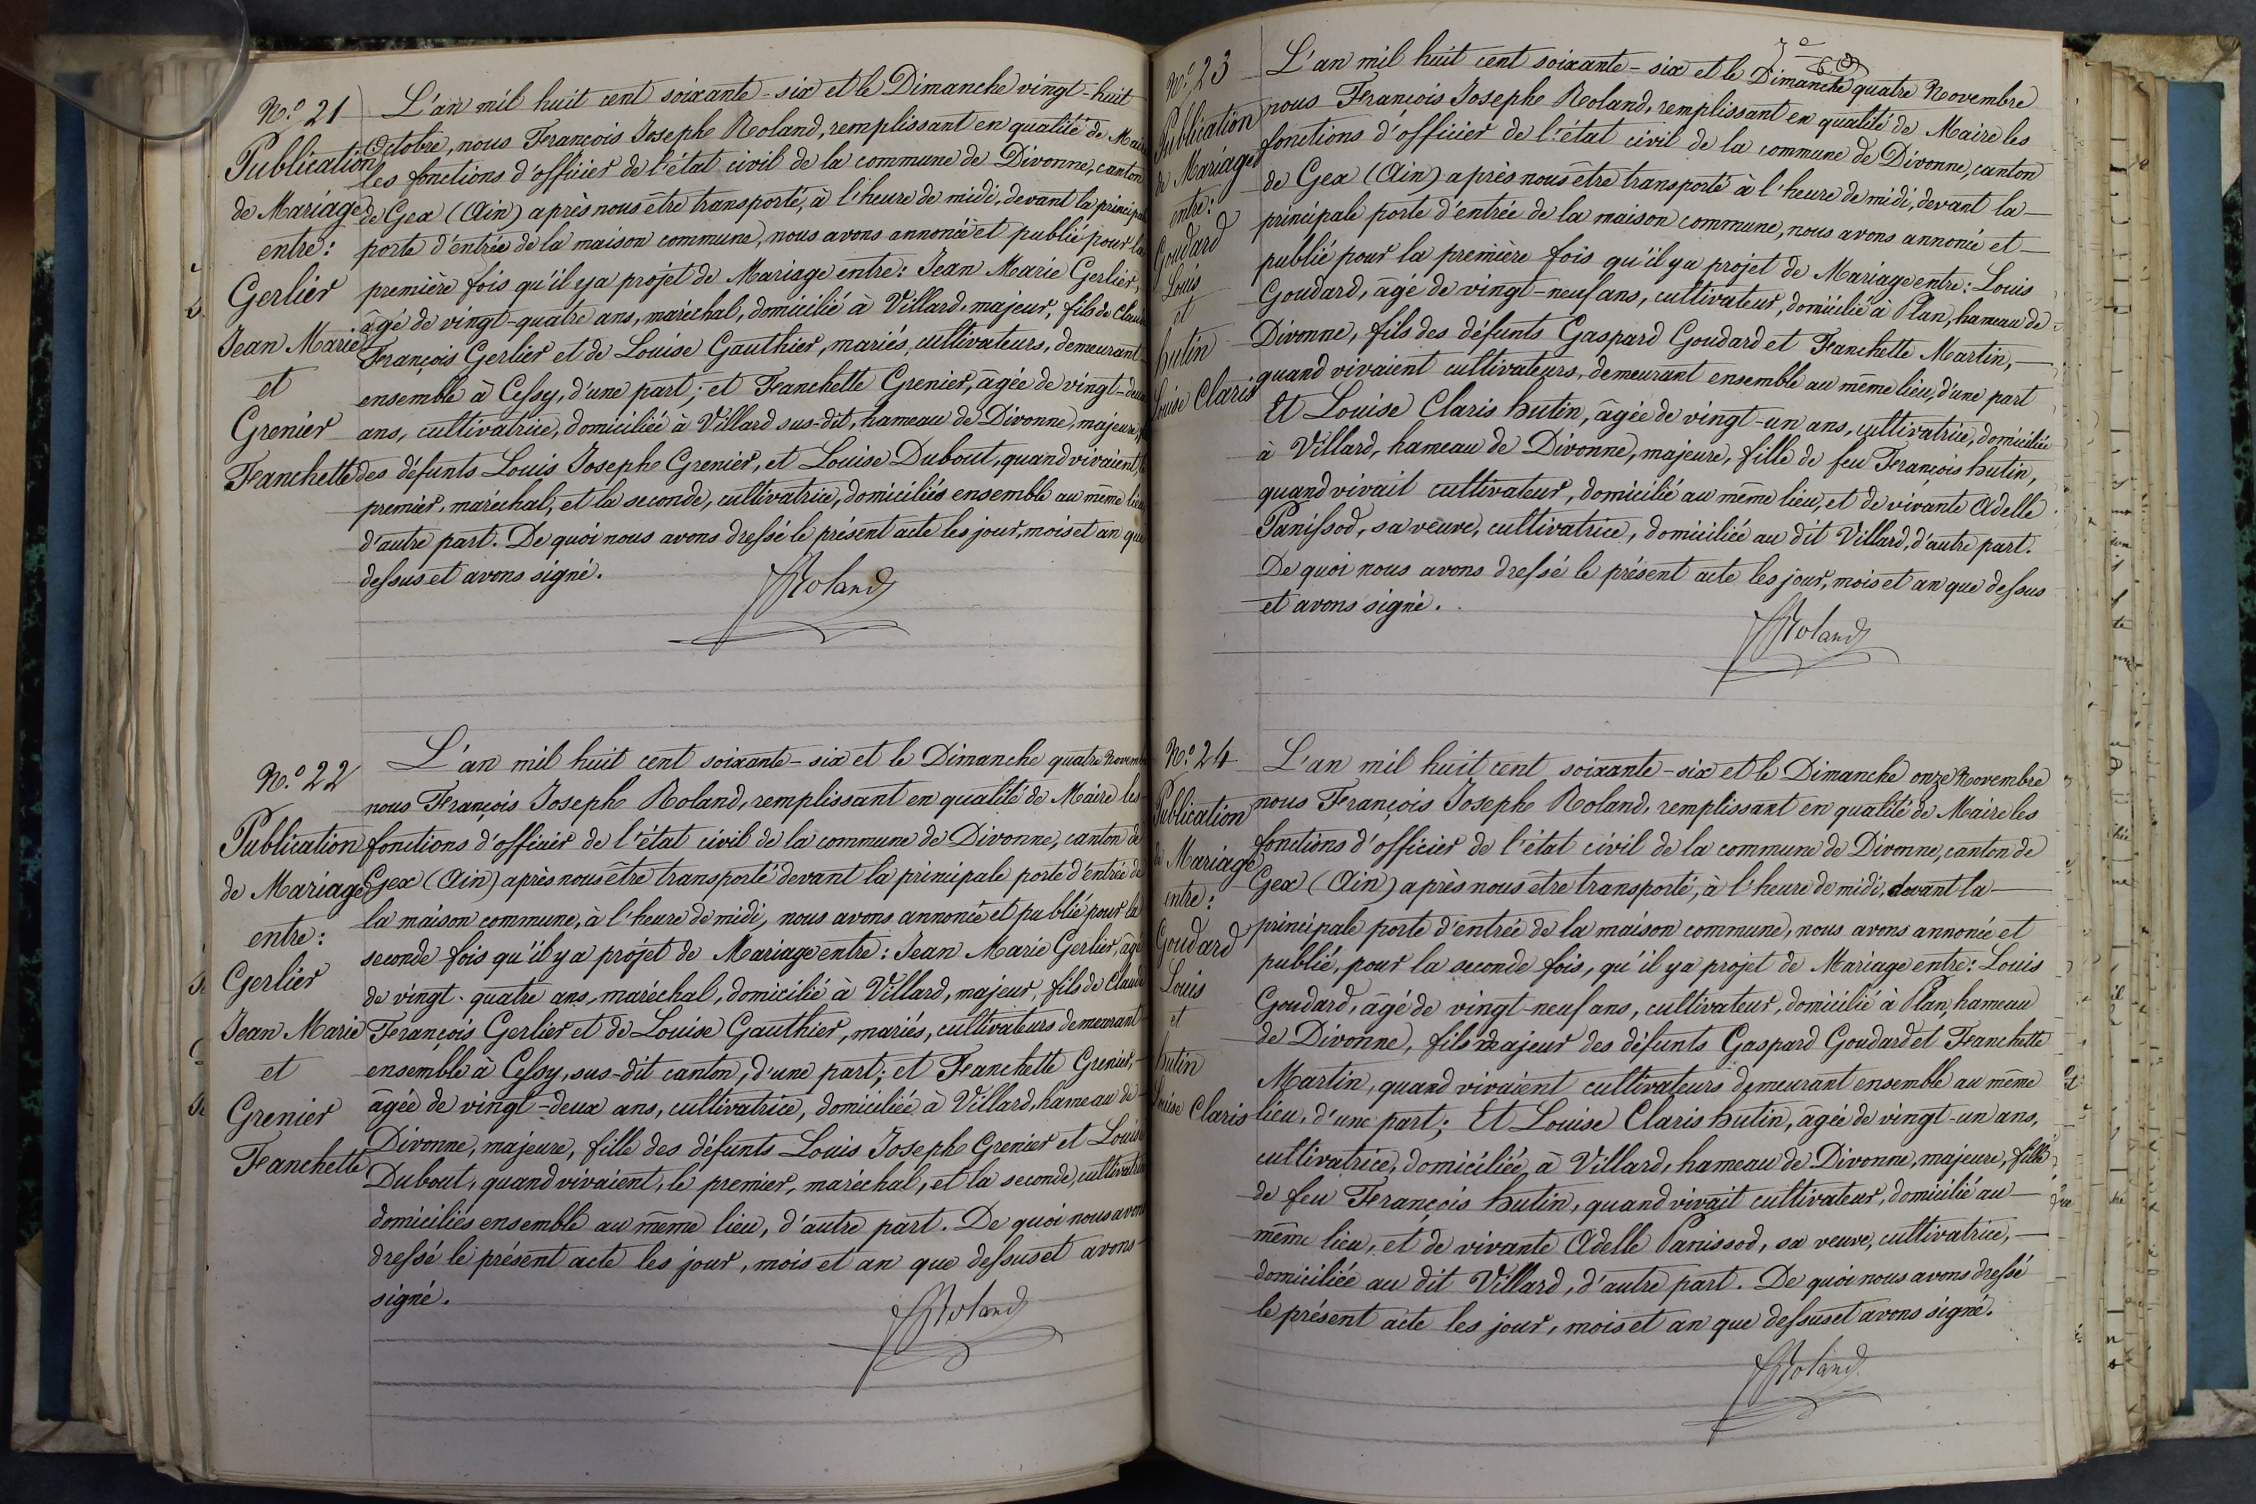 N.º 21
Publication
de Mariage
entre :
Gerlier
Jean Marie
et
Grenier
Franchette
L'an mil huit cent soixante-six et le Dimanche vingt-huit
Octobre, nous François Joseph Roland, remplissant en qualité de Maire
les fonctions d'officier de l'état civil de la commune de Divonne, canton
de Gex (Ain) après nous être transporté, à l'heure de midi, devant la principale
porte d'entrée de la maison commune, nous avons annoncé et publié pour la
première fois qu'il y a projet de Mariage entre : Jean Marie Gerlier,
âgé de vingt-quatre ans, maréchal, domicilié à Villard, majeur, fils de Claude
François Gerlier et de Louise Gauthier, mariés, cultivateurs, demeurant
ensemble à Cessy, d'une part ; et Franchette Grenier, âgée de vingt-deux
ans, cultivatrice, domiciliée à Villard sus-dit, hameau de Divonne, majeure,
des défunts Louis Joseph Grenier, et Louise Dubout, quand vivaient, le
premier, maréchal, et la seconde, cultivatrice, domiciliés ensemble au même lieu
d'autre part. De quoi nous avons dressé le présent acte les jour, mois et an que
dessus et avons signé.
Roland
N.º 22
Publication
de Mariage
entre :
Gerlier
Jean Marie
et
Grenier
Franchette
L'an mil huit cent soixante-six et le Dimanche quatre Novembre
nous François Joseph Roland, remplissant en qualité de Maire les
fonctions d'officier de l'état civil de la commune de Divonne, canton de
Gex (Ain) après nous être transporté devant la principale porte d'entrée de
la maison commune, à l'heure de midi, nous avons annoncé et publié pour la
seconde fois qu'il y a projet de Mariage entre : Jean Marie Gerlier, âgé
de vingt-quatre ans, maréchal, domicilié à Villard, majeur, fils de Claude
François Gerlier et de Louise Gauthier, mariés, cultivateurs demeurant
ensemble à Cessy, sus-dit canton, d'une part ; et Franchette Grenier,
âgée de vingt-deux ans, cultivatrice, domiciliée à Villard, hameau de
Divonne, majeure, fille des défunts Louis Joseph Grenier et Louise
Dubout, quand vivaient, le premier, maréchal, et la seconde, cultivatrice
domiciliés ensemble au même lieu, d'autre part. De quoi nous avons
dressé le présent acte les jour, mois et an que dessus et avons
signé.
Roland
N.º 23
Publication
de Mariage
entre :
Goudard
Louis
et
hutin
Louise Claris
L'an mil huit cent soixante-six et le Dimanche quatre Novembre
nous François Joseph Roland, remplissant en qualité de Maire les
fonctions d'officier de l'état civil de la commune de Divonne, canton
de Gex (Ain) après nous être transporté à l'heure de midi, devant la
principale porte d'entrée de la maison commune, nous avons annoncé et
publié pour la première fois qu'il y a projet de Mariage entre : Louis
Goudard, âgé de vingt-neuf ans, cultivateur, domicilié à Plan, hameau de
Divonne, fils des défunts Gaspard Goudard et Franchette Martin,
quand vivaient cultivateurs, demeurant ensemble au même lieu, d'une part
Et Louise Claris hutin, âgée de vingt-un ans, cultivatrice, domiciliée
à Villard, hameau de Divonne, majeure, fille de feu François hutin,
quand vivait cultivateur, domicilié au même lieu, et de vivante Adelle
Panissod, sa veuve, cultivatrice, domiciliée au dit Villard, d'autre part.
De quoi nous avons dressé le présent acte les jour, mois et an que dessus
et avons signé.
Roland
N.º 24
Publication
de Mariage
entre :
Goudard
Louis
et
hutin
Louise Claris
L'an mil huit cent soixante-six et le Dimanche onze Novembre
nous François Joseph Roland, remplissant en qualité de Maire les
fonctions d'officier de l'état civil de la commune de Divonne, canton de
Gex (Ain) après nous être transporté, à l'heure de midi, devant la
principale porte d'entrée de la maison commune, nous avons annoncé et
publié, pour la seconde fois, qu'il y a projet de Mariage entre : Louis
Goudard, âgé de vingt-neuf ans, cultivateur, domicilié à Plan, hameau
de Divonne, fils majeur des défunts Gaspard Goudard et Franchette
Martin, quand vivaient cultivateurs demeurant ensemble au même
lieu, d'une part ; Et Louise Claris hutin, âgée de vingt-un ans,
cultivatrice, domiciliée à Villard, hameau de Divonne, majeure, fille
de feu François hutin, quand vivait cultivateur, domicilié au
même lieu, et de vivante Adelle Panissod, sa veuve, cultivatrice,
domiciliée au dit Villard, d'autre part. De quoi nous avons dressé
le présent acte les jour, mois et an que dessus et avons signé.
Roland